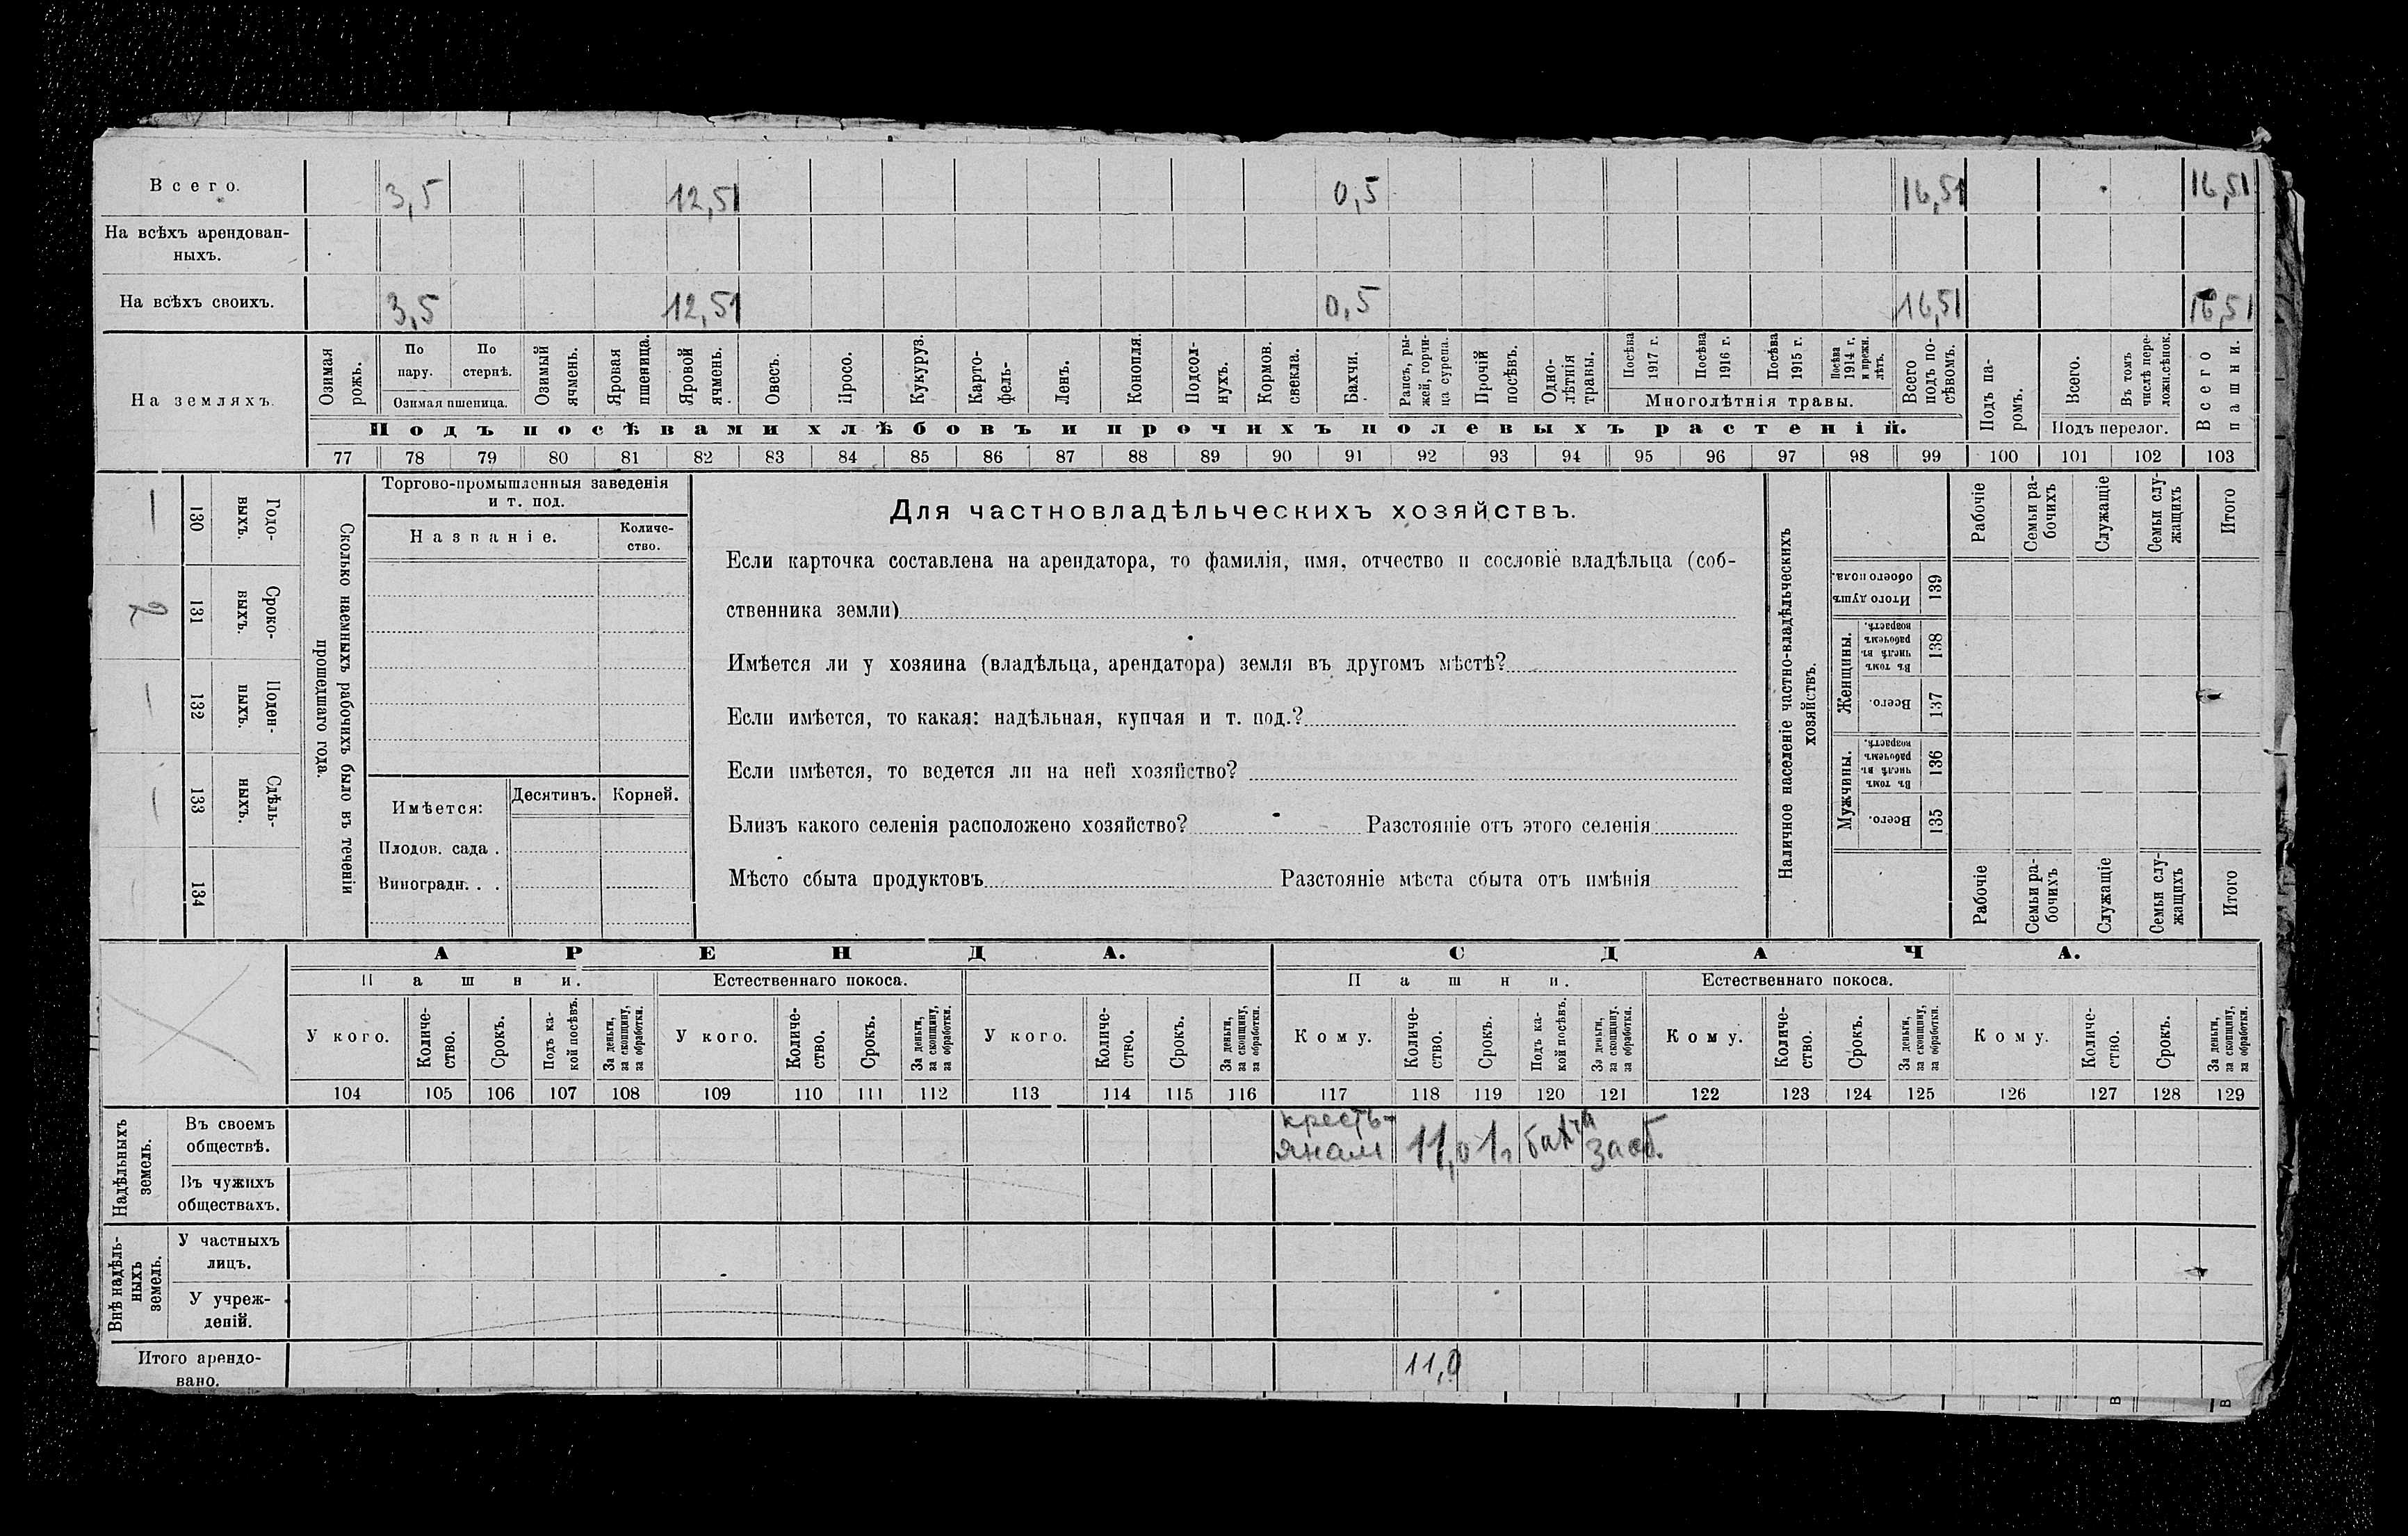 Всего. 3,5 12,51 0,5 16,51 16,51
На всѣхъ арендован-
ныхъ.
На всѣхъ своихъ. 3,5 12,51 0,5 16,51 16,51
На земляхъ.
Озимая рожь.
По пару.
По стернѣ.
Озимая пшеница.
Озимый ячмень.
Яровая пшеница.
Яровой ячмень.
Овесъ.
Просо.
Кукуруз.
Карто-
фель-
Ленъ.
Конопля.
Подсол-
нухъ.
Кормов. свекла.
Бахчи.
Рапсъ, ры-
жей, горчи-
ца сурепа.
Прочій посѣвъ.
Одно-
лѣтнія
травы.
Посѣва 1917 г.
Посѣва 1916 г.
Посѣва 1915 г.
Посѣва 1914 г. и прежн. лѣтъ.
Многолѣтнія травы.
Всего подъ по-
сѣвомъ.
Подъ посѣвами хлѣбовъ и прочихъ полевыхъ растеній.
Подъ па-
ромъ.
Всего.
Въ томъ числѣ пере-
ложн.сѣнок.
Подъ перелог.
Всего пашни.
77 78 79 80 81 82 83 84 85 86 87 88 89 90 91 92 93 94 95 96 97 98 99 100 101 102 103
Сколько наемныхъ рабочихъ было въ теченіи
прошедшаго года.
Годо-
выхъ.
130
—
Сроко-
выхъ.
131
2
Поден-
ныхъ.
132
—
Сдѣль-
ныхъ.
133
—
134
Торгово-промышленныя заведенія
и т. под.
Названіе.
Количе-
ство.
Имѣется:
Десятинъ. Корней.
Плодов. сада .
Виноградн. . .
Для частновладѣльческихъ хозяйствъ.
Если карточка составлена на арендатора, то фамилія, имя, отчество и сословіе владѣльца (соб-
ственника земли)
Имѣется ли у хозяина (владѣльца, арендатора) земля въ другомъ мѣстѣ?
Если имѣется, то какая: надѣльная, купчая и т. под.?
Если имѣется, то ведется ли на ней хозяйство?
Близъ какого селенія расположено хозяйство? Разстояніе отъ этого селенія
Мѣсто сбыта продуктовъ Разстояніе мѣста сбыта отъ имѣнія
Наличное населеніе частно-владѣльческихъ
хозяйствъ.
Рабочіе
Семьи ра-
бочихъ
Служащіе
Семьи слу-
жащихъ
Итого
Итого душъ
обоего пола.
139
Женщины.
Въ томъ
числѣ въ
рабочемъ
возрастѣ.
138
Всего.
137
Мужчины.
Въ томъ
числѣ въ
рабочемъ
возрастѣ.
136
Всего.
135
Рабочіе
Семьи ра-
бочихъ
Служащіе
Семьи слу-
жащихъ
Итого
АРЕНДА. СДАЧА.
Пашни. Естественнаго покоса. Пашни. Естественнаго покоса.
У кого.
Количе-
ство.
Срокъ.
Подъ ка-
кой посѣвъ.
За деньги,
за скопщину,
за обработки.
У кого.
Количе-
ство.
Срокъ.
За деньги,
за скопщину,
за обработки.
У кого.
Количе-
ство.
Срокъ.
За деньги,
за скопщину,
за обработки.
Кому.
Количе-
ство.
Срокъ.
Подъ ка-
кой посѣвъ.
За деньги,
за скопщину.
за обработки.
Кому.
Количе-
ство.
Срокъ.
За деньги,
за скопщину,
за обработки.
Кому.
Количе-
ство.
Срокъ.
За деньги,
за скопщину,
за обработки.
104 105 106 107 108 109 110 111 112 113 114 115 116 117 118 119 120 121 122 123 124 125 126 127 128 129
Надѣльныхъ
земель.
Въ своемъ
обществѣ.
кресть-
янам 11,0 1г
Въ чужихъ
обществахъ.
Внѣ надѣль-
ныхъ
земель.
У частныхъ
лицъ.
У учреж-
деній.
Итого арендо-
вано. 11,0